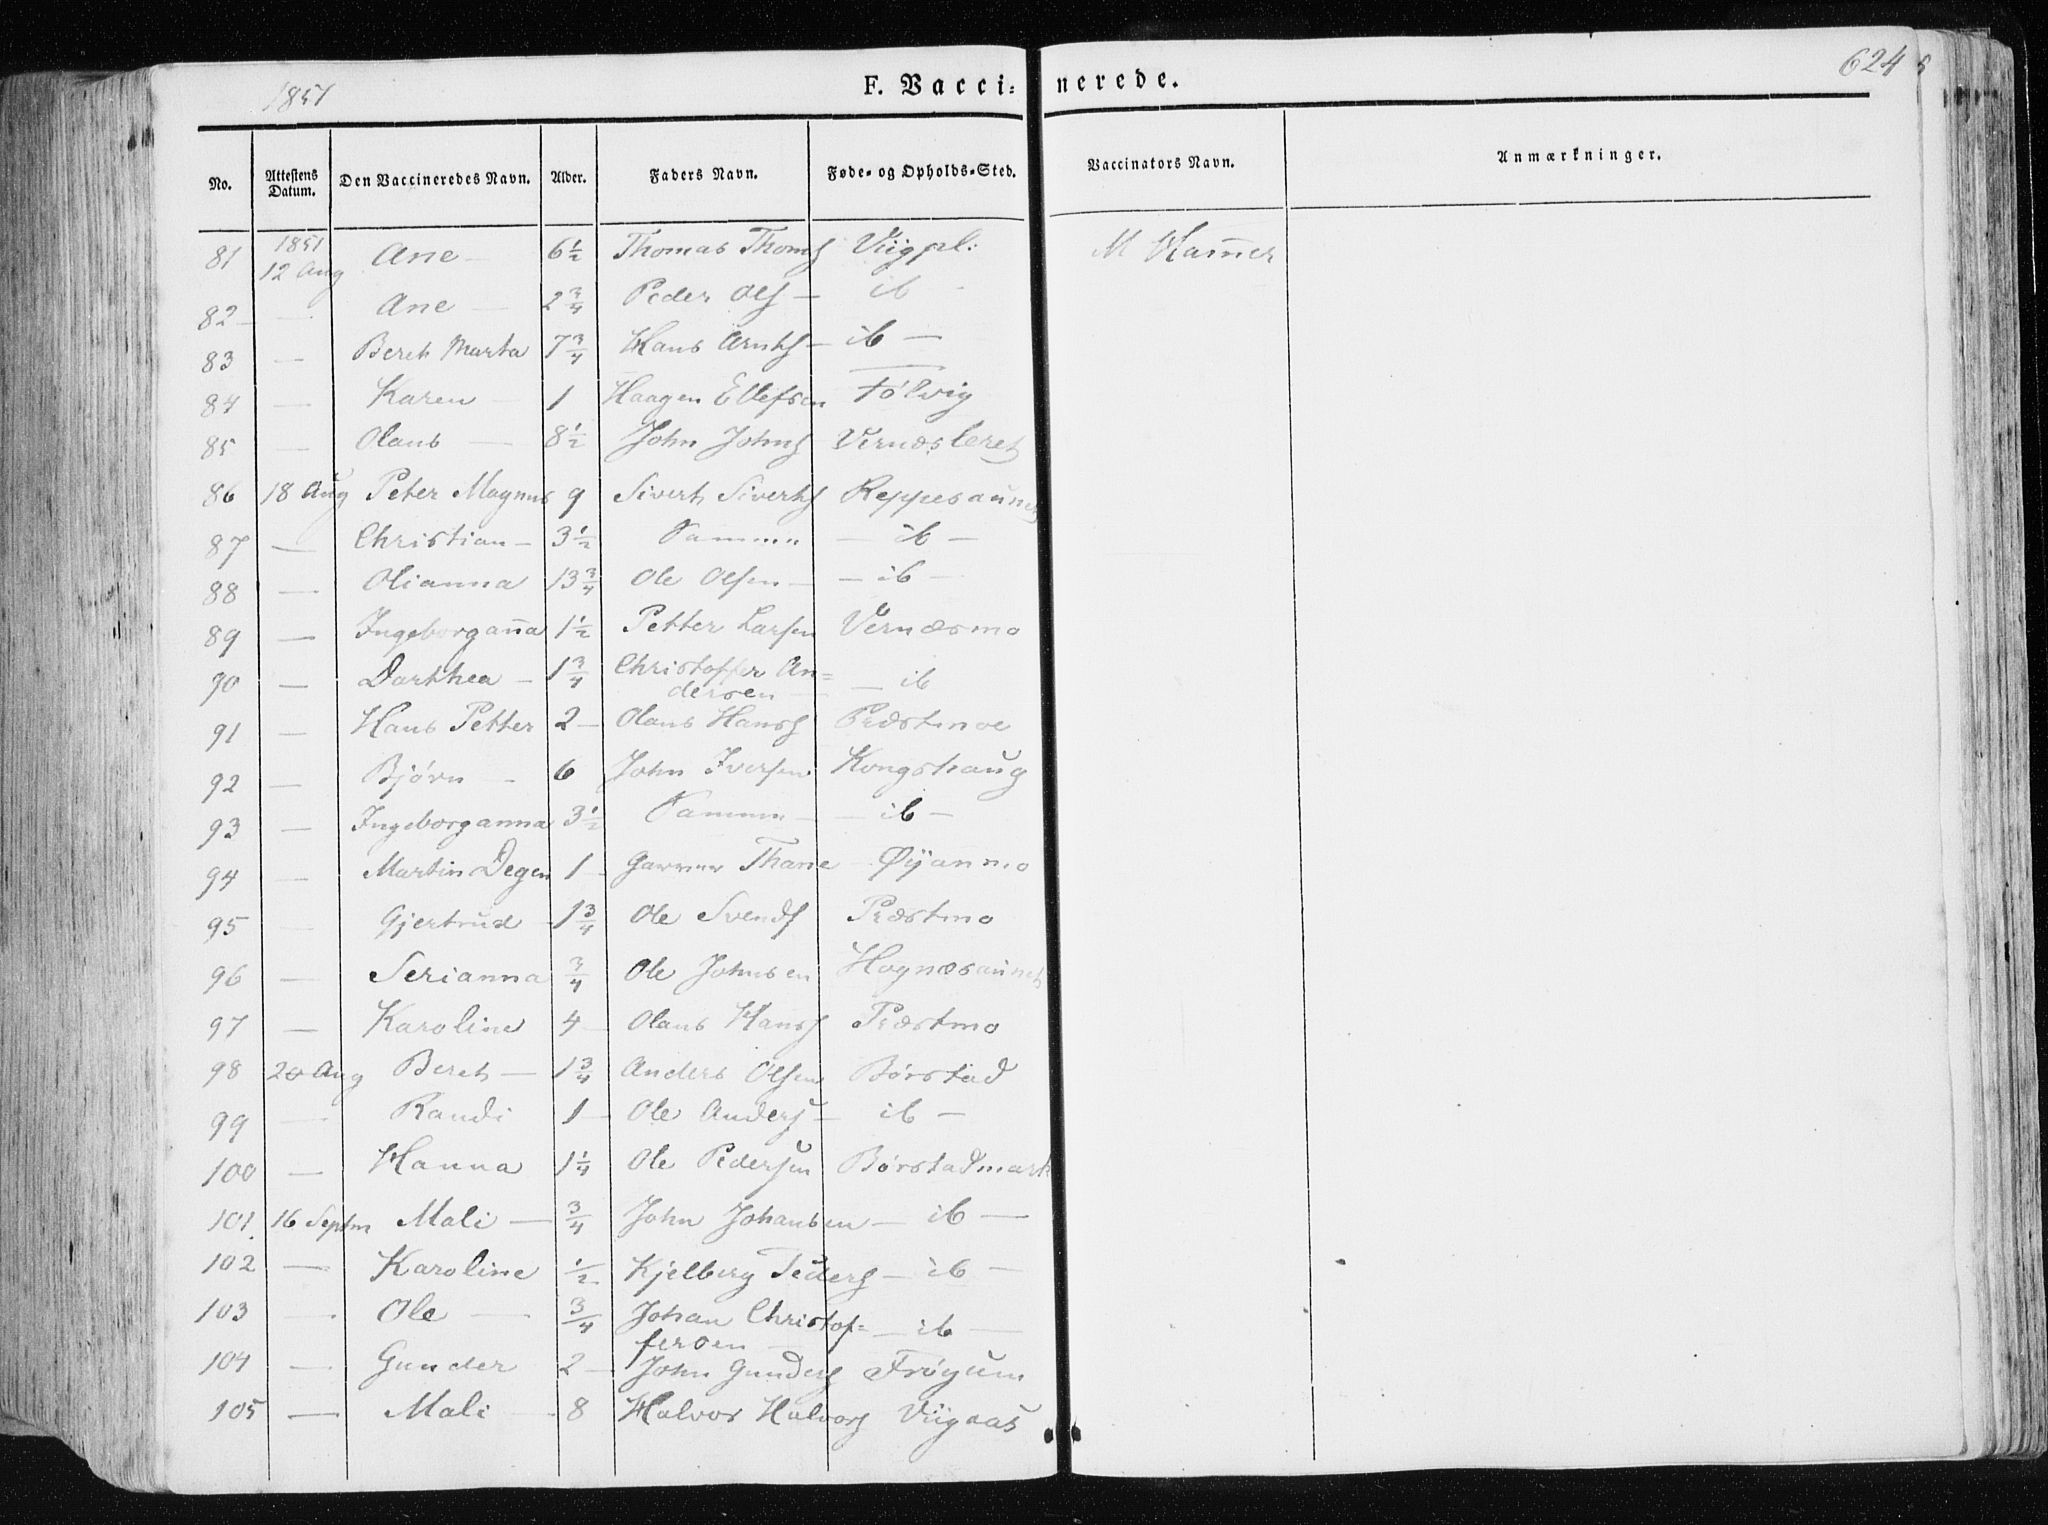 1851 F. Vaccinerede. 624
No. Attestens Datum. Den Vaccineredes Navn. Alder. Faders Navn. Føde- og Opholds-Sted. Vaccinators Navn. Anmærkninger.
81 1851 12 Aug Ane — 6½ Thomas Thoms Viigpl: M Ham̄er
82 — — Ane — 2¾ Peder Ols — ib —
83 — Beret Marta 7¾ Hans Arnts — ib —
84 — Karen — 1 Haagen Ellefsen Følvig
85 — Olaus — 8½ John Johns Vernæsleret
86 18 Aug Peter Magnus 9 Sivert Siverts Reppesaunet
87 — Christian — 3½ Samme — ib —
88 — Olianna 13¾ Ole Olsen — — ib —
89 — Ingeborgan̄a 1½ Petter Larsen Vernæsmo
90 — Dorthea — 1¾ Christoffer An=
dersen — — ib
91 — Hans Petter 2 — Olaus Hanss Præstmoe
92 — Bjørn — 6 John Iversen Kongshaug
93 — Ingeborganna 3½ Samme — — ib —
94 — Martin Degen 1 — Garver Thane Øyanmo
95 — Gjertrud — 1¾ Ole Svends Præstmo
96 — Serianna ¾ Ole Johnsen Hognæsaunet
97 — Karoline 4 — Olaus Hanss Præstmo
98 20 Aug Beret — 1¾ Anders Olsen Børstad
99 — Randi 1 — Ole Anders — ib —
100 — Hanna 1¼ Ole Pedersen Børstadmark
101. 16 Septm Mali — ¾ John Johansen — ib —
102 — Karoline ½ Kjelberg Peders — ib —
103 — Ole — ¾ Johan Christof=
fersen — — ib —
104 — Gunder 2 — John Gunders Frøyum
105 — Mali — 8 Halvor Halvors Viigaas